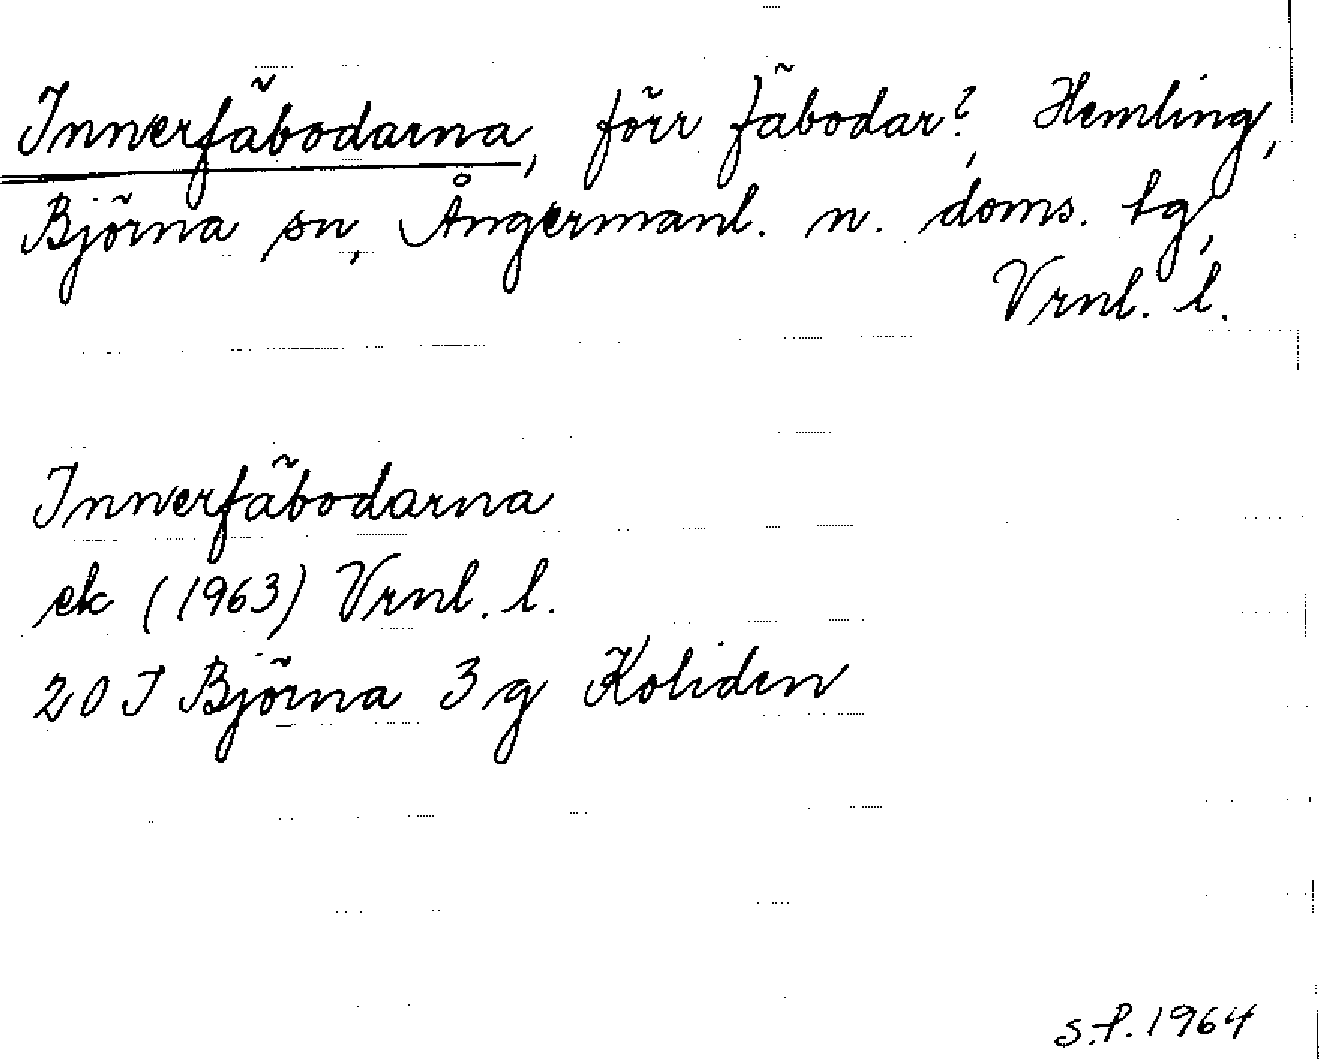 Innerfäbodarna, förr fäbodar?, Hemling,
Björna sn, Ångermanl. n. doms. tg,
Vrnl. l.
Innerfäbodarna
ek (1963) Vrnl. l.
20 I Björna 3 g Koliden
S.f. 1964